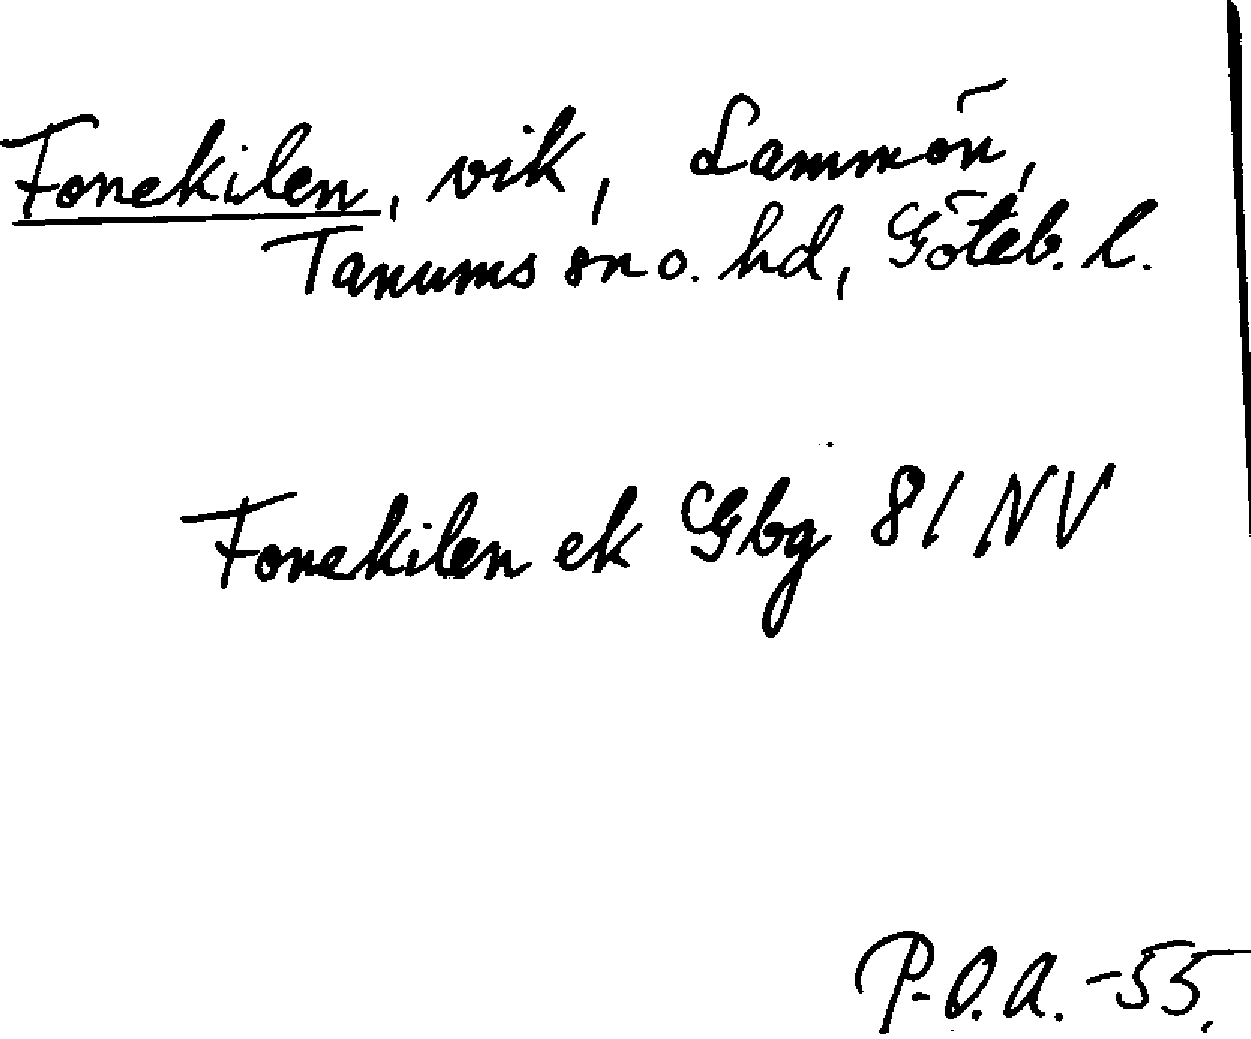 Fonekilen, vik, Lammön,
Tanums sn o. hd, Göteb. l.
Fonekilen ek Gbg 81 NV
P-O.A. -55.